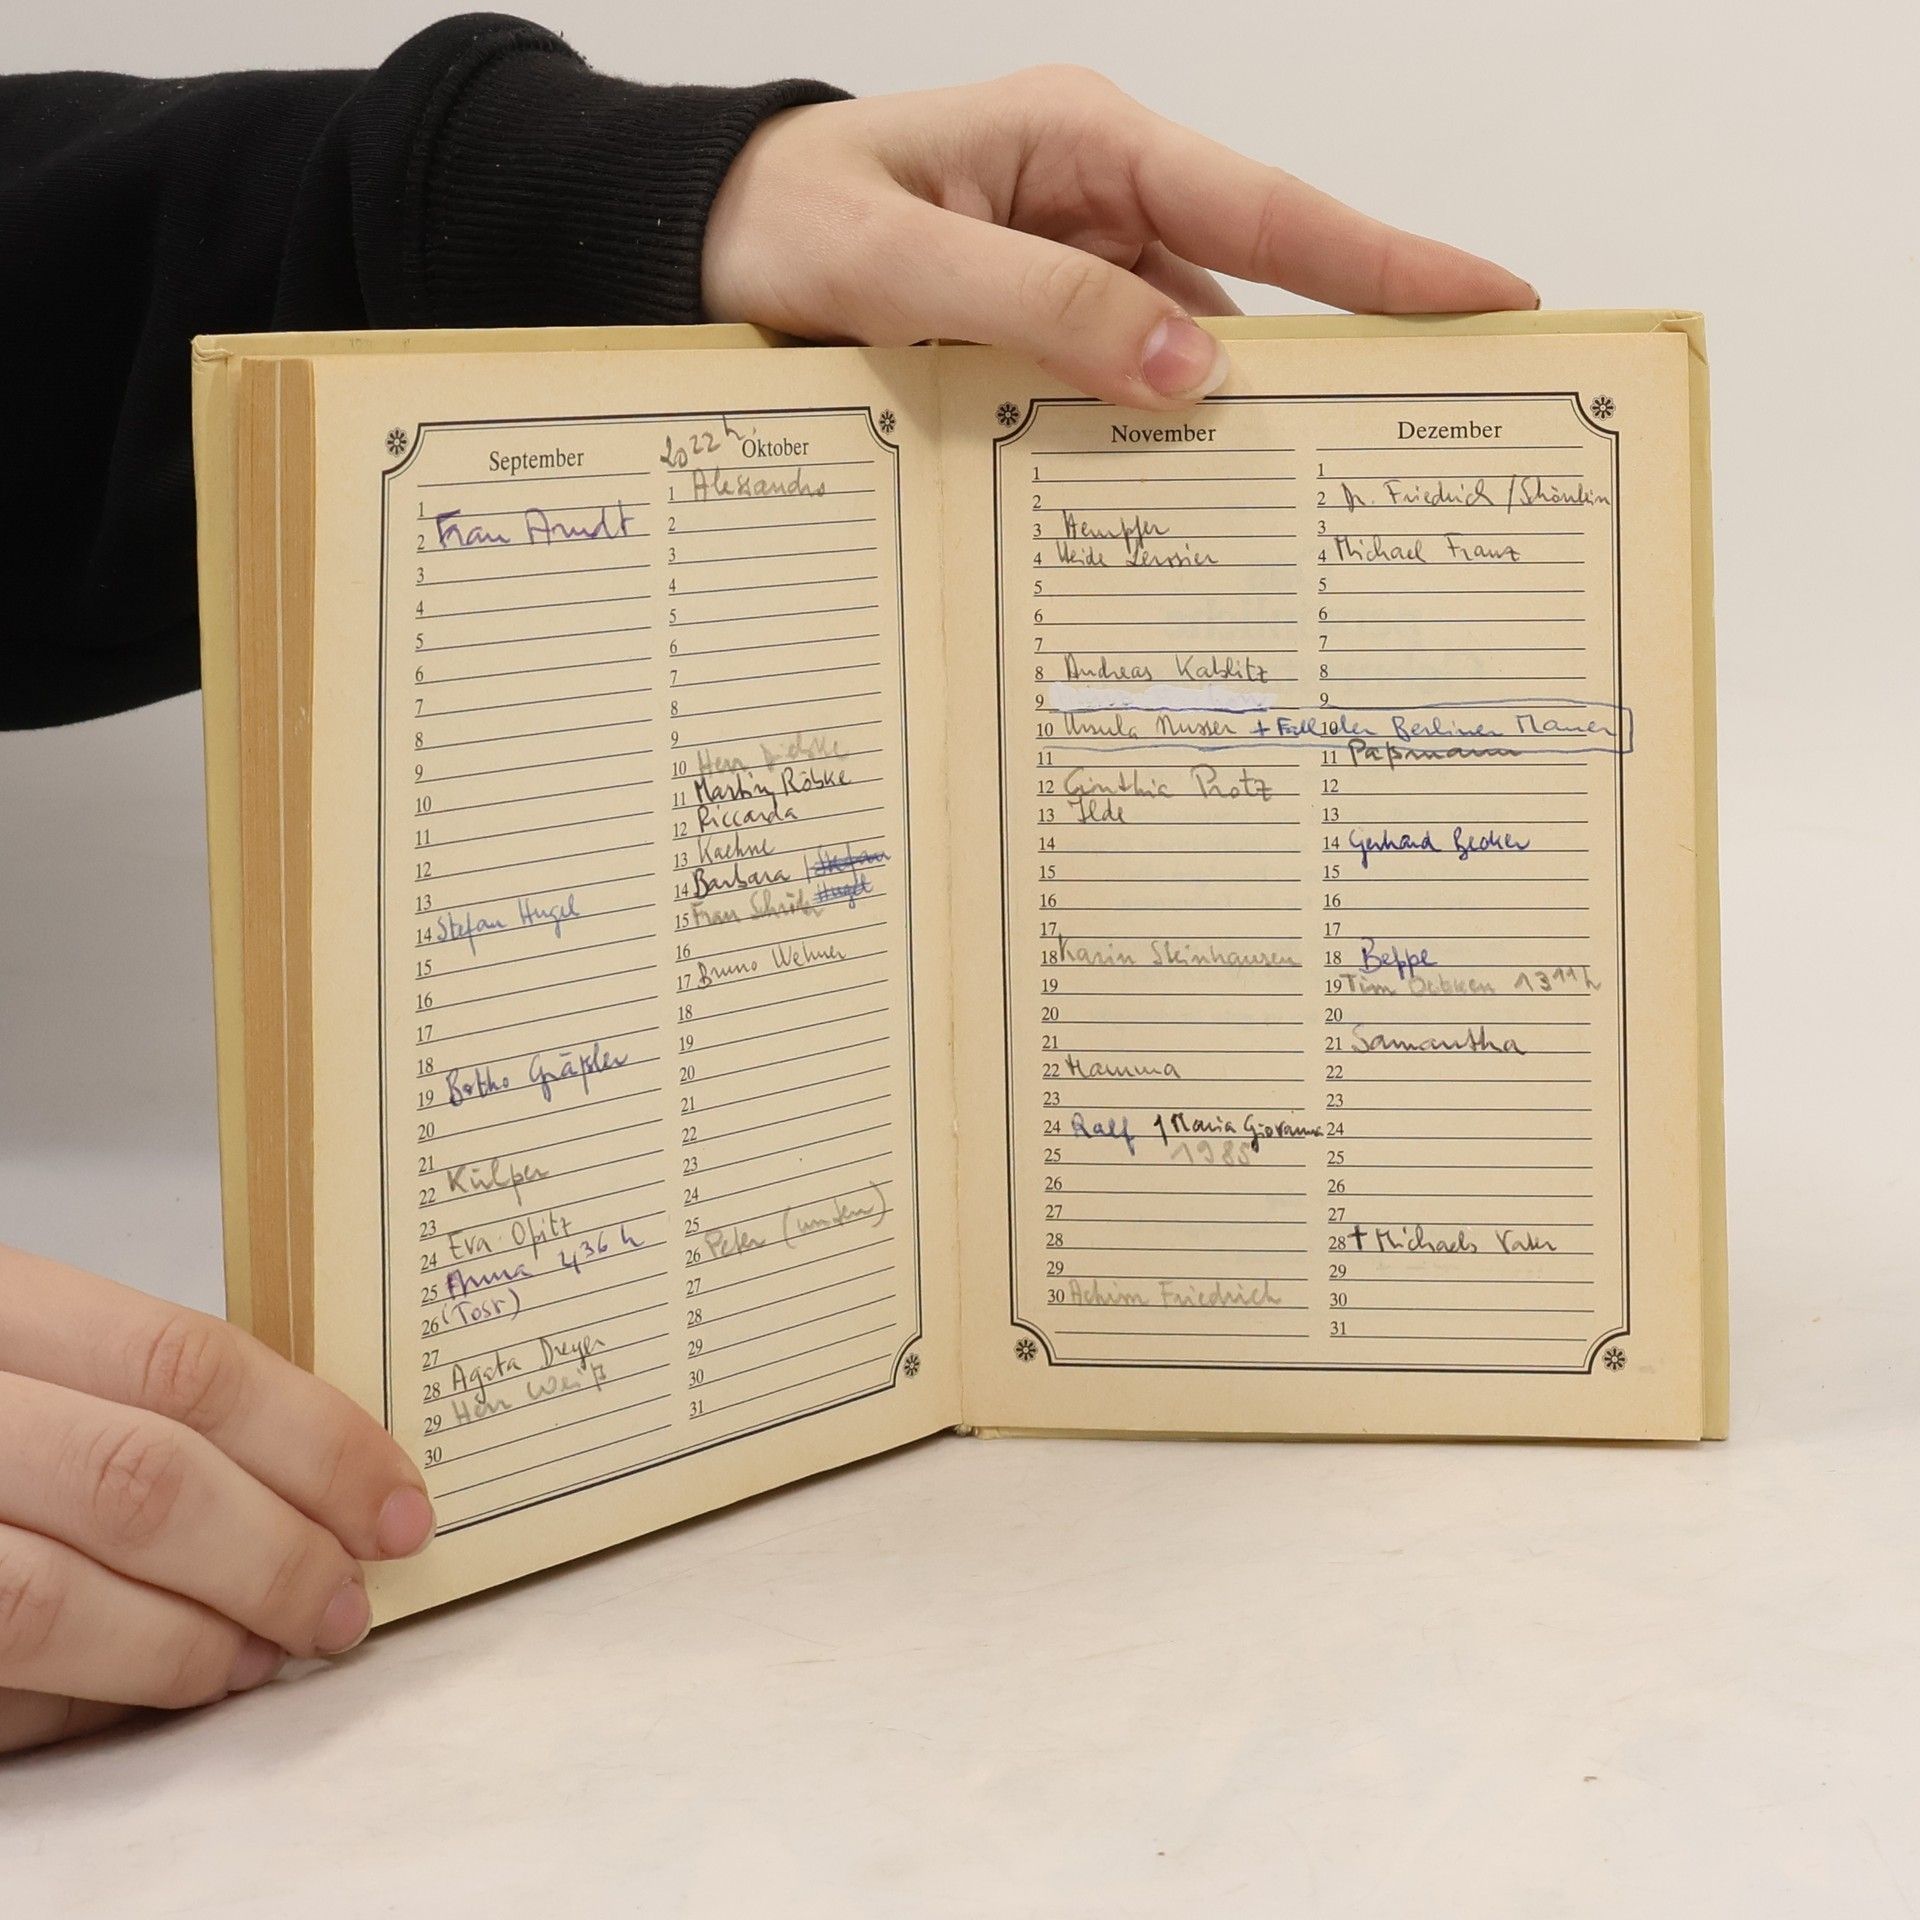 September
1
2 Frau Arndt
3
4
5
6
7
8
9
10
11
12
13
14 Stefan Hugel
15
16
17
18
19 Botho Gräßler
20
21
22 Külper
23
24 Eva Opitz
25 Anna 4 36 h
26 (Tosr)
27
28 Agata Dreyer
29 Herr Weiß
30
20 22 h
Oktober
1 Alessandro
2
3
4
5
6
7
8
9
10 Herr
11 Martin Röske
12 Riccarda
13 Kaehne
14 Barbara / Stefan
15 Frau Hugel
16
17 Bruno Wehner
18
19
20
21
22
23
24
25
26 Peter (unten)
27
28
29
30
31
November
1
2
3 Hempfer
4 Heide
5
6
7
8 Andreas Kablitz
9
10 Ursula Musser + Fall der Berliner Mauer
11
12 Cinthia Protz
13 Ilde
14
15
16
17
18 Karin Steinhausen
19
20
21
22 Mamma
23
24 Ralf / Maria Giovanna
25 1985
26
27
28
29
30 Achim Friedrich
Dezember
1
2 Dr. Friedrich / Schönlein
3
4 Michael Franz
5
6
7
8
9
10
11 Papmann
12
13
14 Gerhard Becker
15
16
17
18 Beppe
19 Tim 13 11 h
20
21 Samantha
22
23
24
25
26
27
28 † Michaels Vater
29
30
31